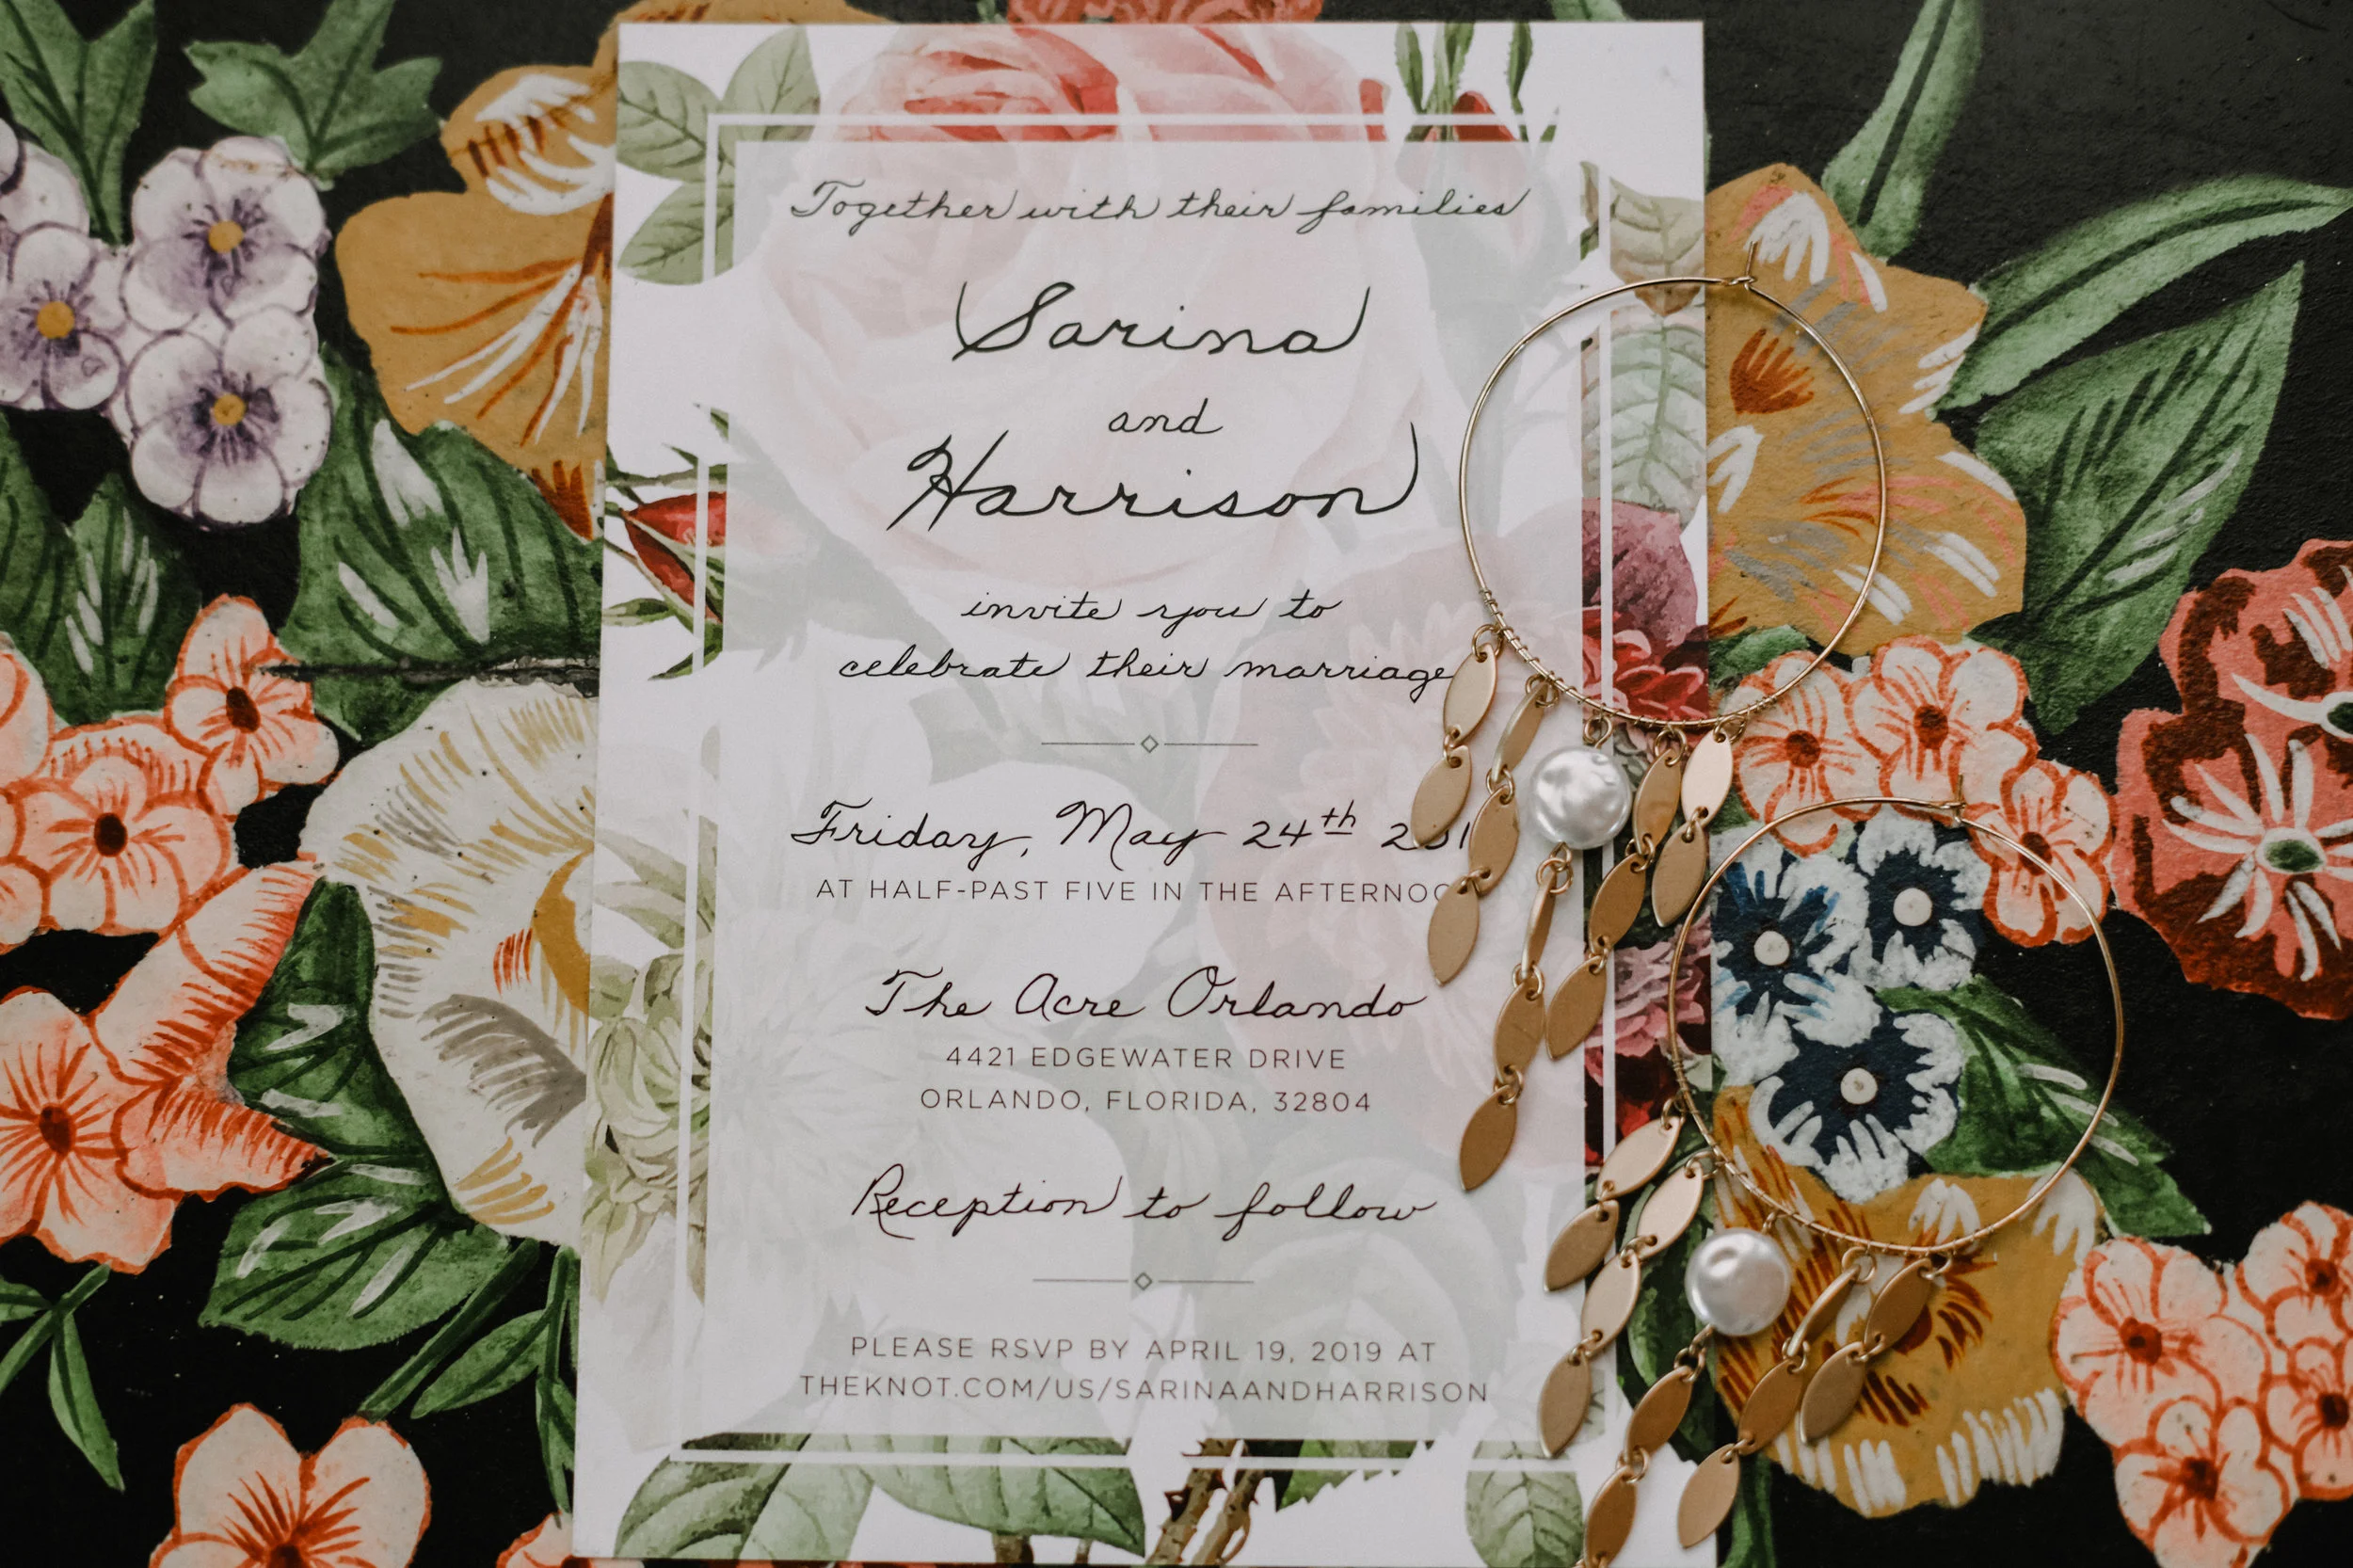 Together with their families
Sarina
and
Harrison
invite you to
celebrate their marriage
Friday, May 24th
AT HALF-PAST FIVE IN THE
The Acre Orlando
4421 EDGEWATER DRIVE
ORLANDO, FLORIDA, 32804
Reception to follow
PLEASE RSVP BY APRIL 19, 2019 AT
THEKNOT.COM/US/SARINAANDHARRISON